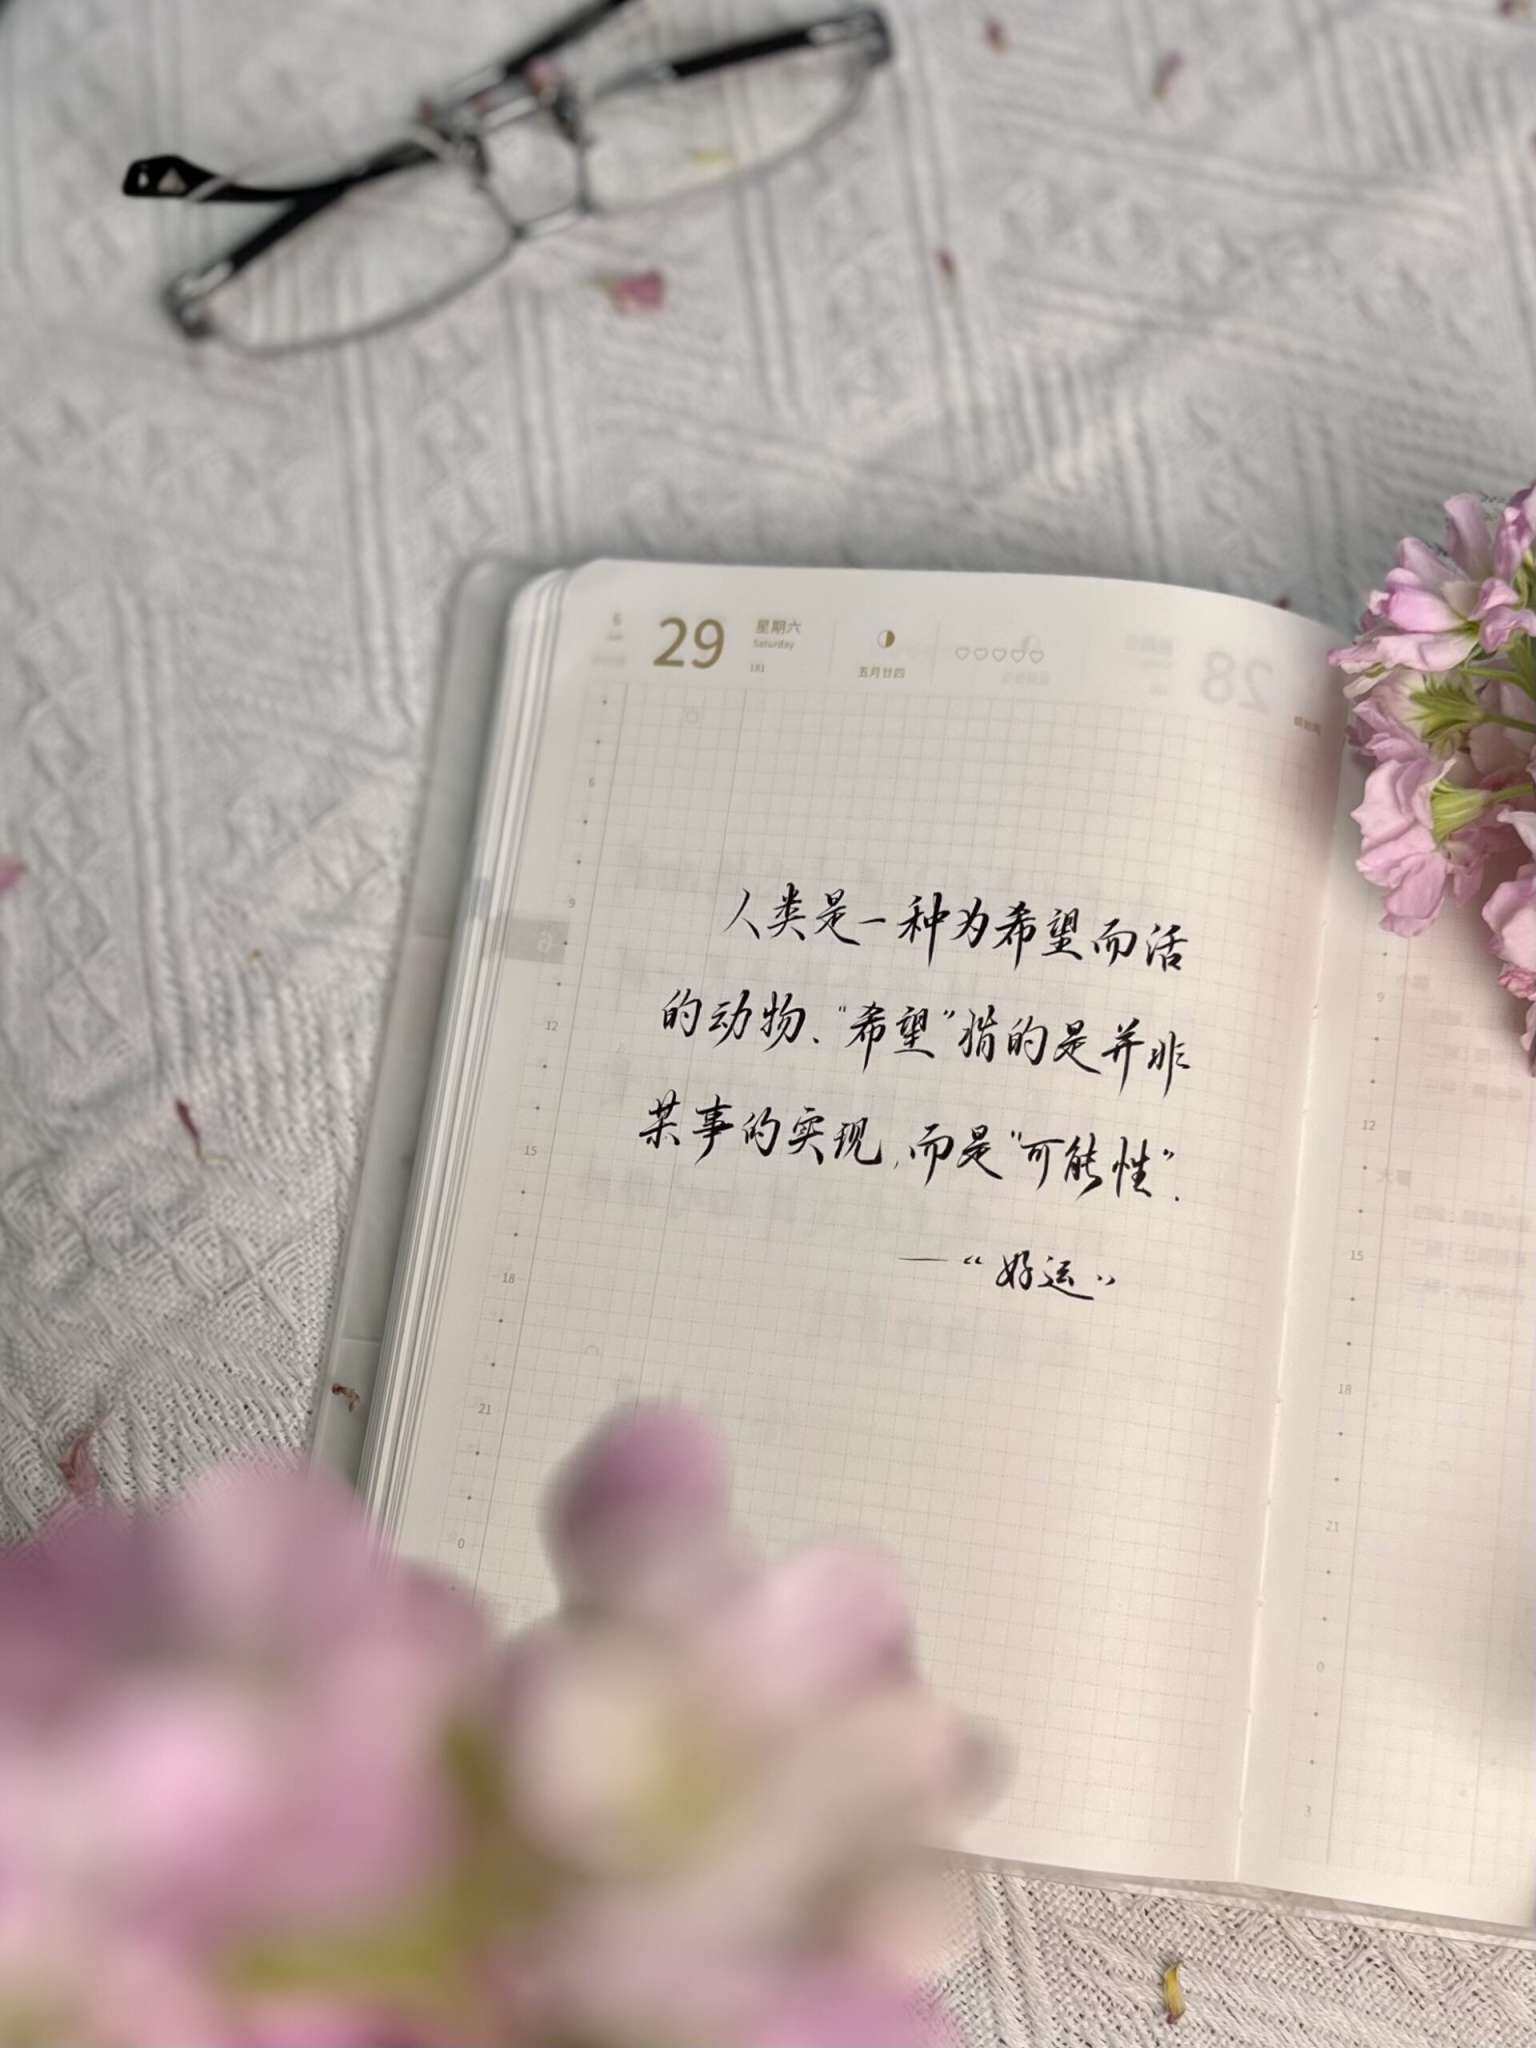 29 星期六
Saturday
181
五月廿四
人类是一种为希望而活
的动物、“希望”指的是并非
某事的实现,而是“可能性”.
—“好运”
6
9
12
15
18
21
0
9
12
15
18
21
0
3